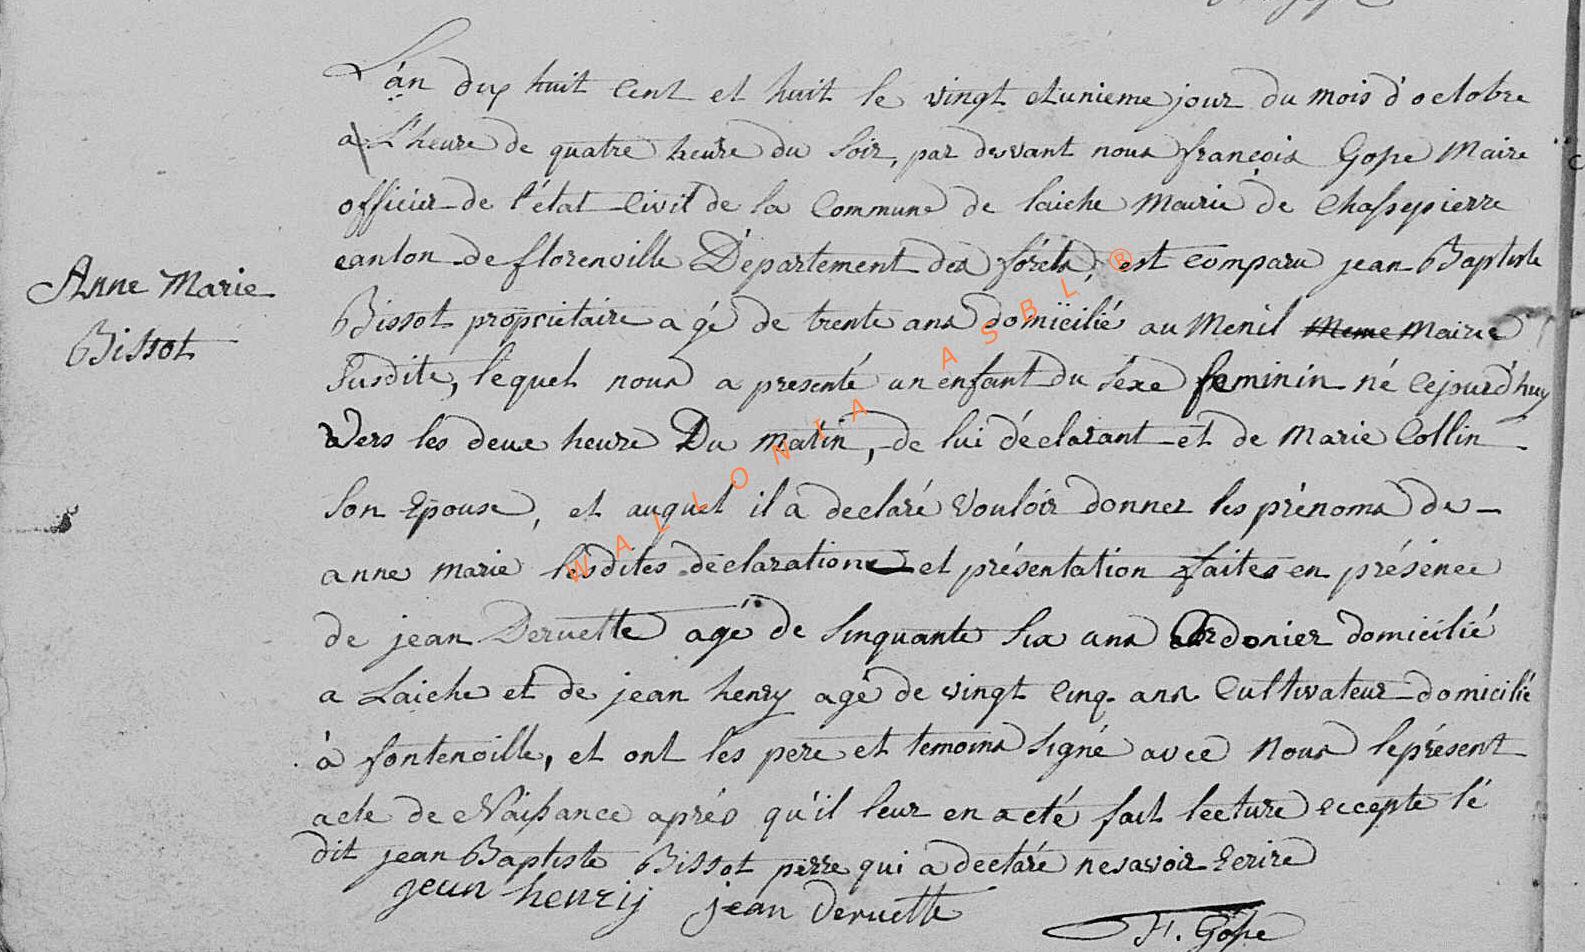 Anne Marie
Bissot
L'an dix huit cent et huit le vingt et unieme jour du mois d'octobre
a L'heure de quatre heure du soir, par devant nous françois Gope Maire
officier de l'état civil de la commune de laiche Mairie de Chassepierre
canton de florenville Département des foréts, est comparu jean Baptiste
Bissot proprietaire agé de trente ans domicilié au Menil Meme Mairie
Susdite, lequel nous a presenté un enfant du séxe feminin né cejourd'huy
vers les deux heure Du matin, de lui déclarant et de Marie Collin
son Epouse, et auquel il a declaré vouloir donner les prénoms de
anne marie lesdites declarations et présentation faites en présence
de jean Deruette agé de sinquante six ans Cordonier domicilié
a Laiche et de jean henry agé de vingt cinq ans cultivateur domicilié
à fontenoille, et ont les pere et temoins signé avec Nous le présent
acte de Naissance aprés qu'il leur en a eté fait lecture eccepte lé
dit jean Baptiste Bissot perre qui a declaré ne savoir Ecrire
jean henrij jean deruette
F. Gope
WALLONIA ASBL ®